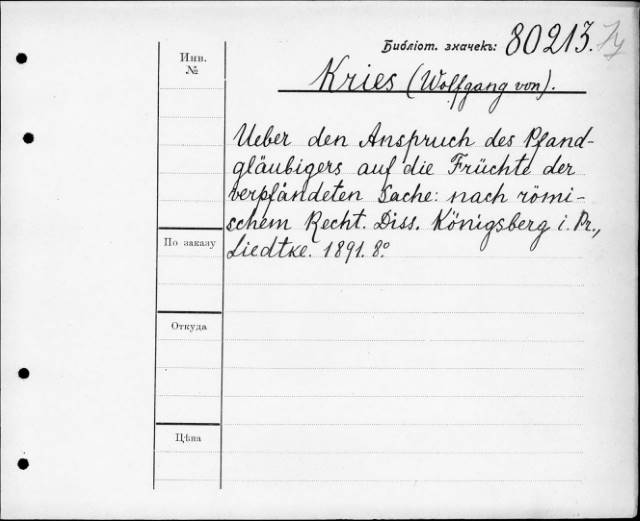 Библіот. значекъ: 80213.
Инв.
№
Kries (Wolfgang von).
Ueber den Anspruch des Pfand-
gläubigers auf die Früchte der
verpfändeten Sache: nach römi-
schem Recht. Diss. Königsberg i. Pr.,
Liedtke. 1891. 8º
По заказу
Откуда
Цѣна